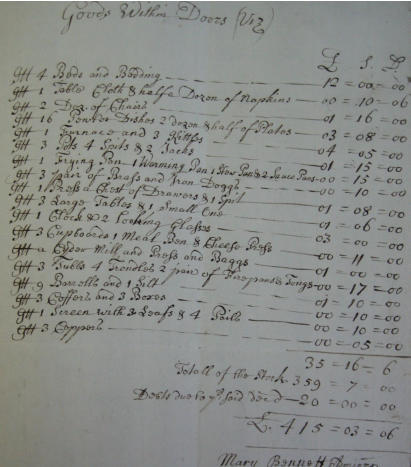 Goods Within Doors (Viz)
£ S D
Itt 4 Beds and Bedding 12 = 00 = 00
Itt 1 Table Cloth & halfe a Dozen of Napkins 00 = 10 = 06
Itt 2 Doz. of Chairs 01 = 16 = 00
Itt 16 Pewter Dishes 2 dozen & half of Plates 03 = 08 = 00
Itt 1 Furnace and 3 Kettles 04 = 05 = 00
Itt 3 Potts 4 Spitts & 2 Jacks 01 = 15 = 00
Itt 1 Frying Pan 1 Warming Pan 1 Stew Pan & 2 Sauce Pans 00 = 15 = 00
Itt 3 pair of Brass and Iron Doggs 00 = 10 = 00
Itt 1 Press a Chest of Drawers & 1 Spit
Itt 3 Large Tables & 1 Small One 01 = 08 = 00
Itt 1 Clock & 2 Looking Glasses 01 = 06 = 00
Itt 3 Cupboards 1 Meal Ben & Cheese Press 03 = 00 = 00
Itt a Cyder Mill and Press and Baggs 00 = 11 = 00
Itt 3 Tubbs 4 Trendles 2 pair of Firepans & Tongs 01 = 00 = 00
Itt 9 Barrells and 1 00 = 17 = 00
Itt 3 Coffers and 3 Boxes 01 = 10 = 00
Itt 1 Screen with 3 Leafs & 4 Pails 00 = 10 = 00
Itt 3 Coppers 00 = 10 = 00
00 = 05 = 00
35 = 16 = 6
Totall of the Stock 359 = 7 = 00
Debts due to ye said Decd 20 = 00 = 00
£ 415 = 03 = 06
Mary Bennett